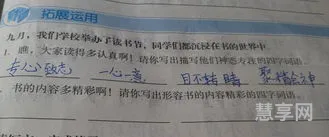 拓展运用
九月,我们学校举办了读书节,同学们都沉浸在书的世界中
1. 瞧,大家读得多认真啊!请你写出描写他们神态专注的四字词语。
专心致志 一心一意 目不转睛 聚精会神
书的内容多精彩啊!请你写出形容书的内容精彩的四字词语。
慧享网